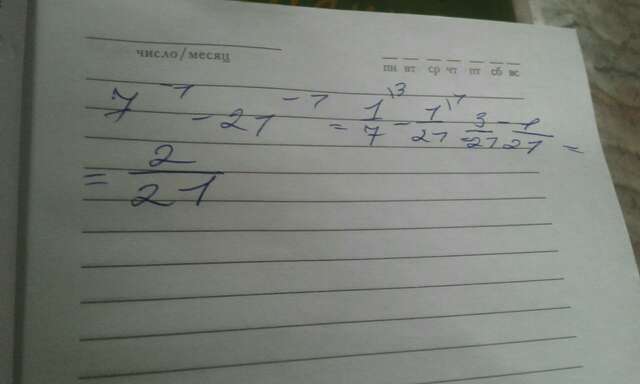 число/месяц
пн вт ср чт пт сб вс
7⁻¹ - 21⁻¹ = 1/7\3 - 1/21\1 = 3/21 - 1/21 =
= 2/21